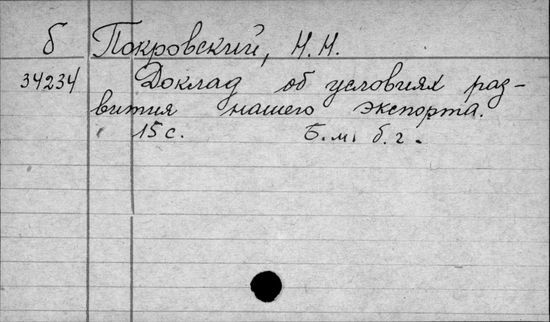 б Покровский, Н.Н.
34234 Доклад об условиях раз-
вития нашего экспорта.
15 с. Б.м. б.г.